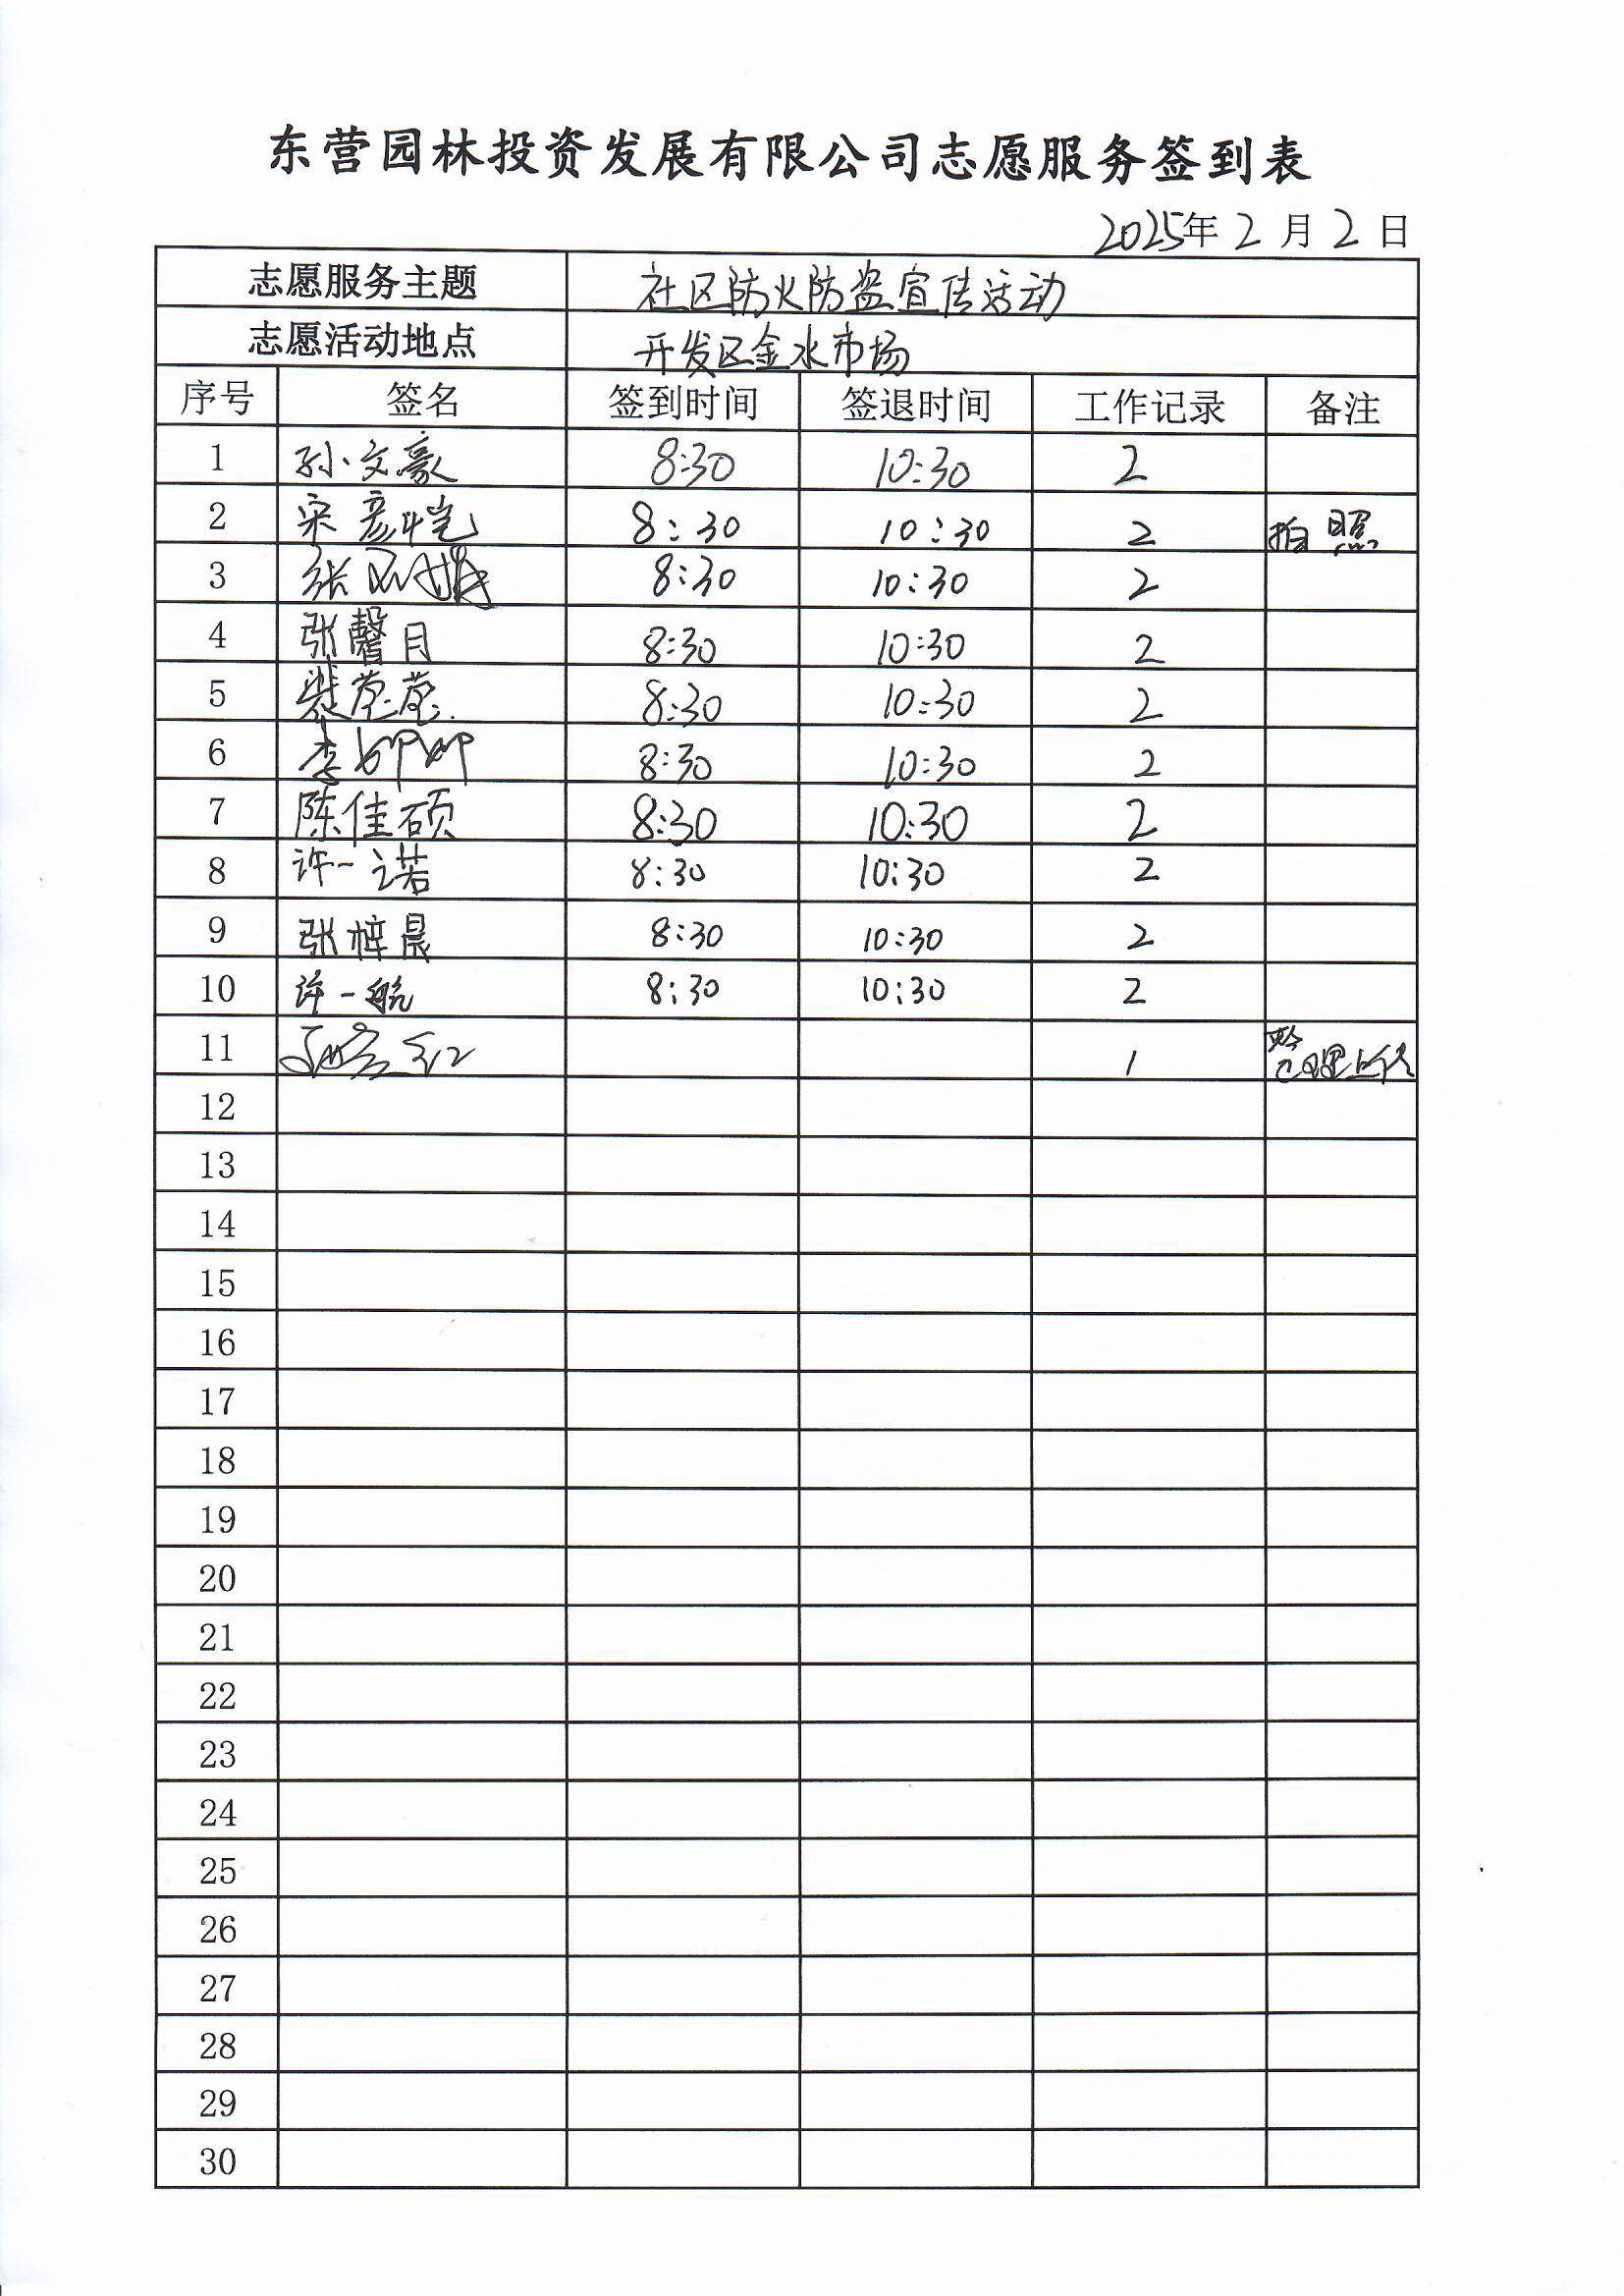 东营园林投资发展有限公司志愿服务签到表
2025年 2 月 2 日
志愿服务主题 社区防火防盗宣传活动
志愿活动地点 开发区金水市场
序号 签名 签到时间 签退时间 工作记录 备注
1 孙文豪 8:30 10:30 2
2 宋彦恺 8:30 10:30 2 拍照
3 张 8:30 10:30 2
4 张馨月 8:30 10:30 2
5 裴莹莹 8:30 10:30 2
6 李 8:30 10:30 2
7 陈佳硕 8:30 10:30 2
8 许一诺 8:30 10:30 2
9 张梓晨 8:30 10:30 2
10 许一航 8:30 10:30 2
11 1 整理上传
12
13
14
15
16
17
18
19
20
21
22
23
24
25
26
27
28
29
30